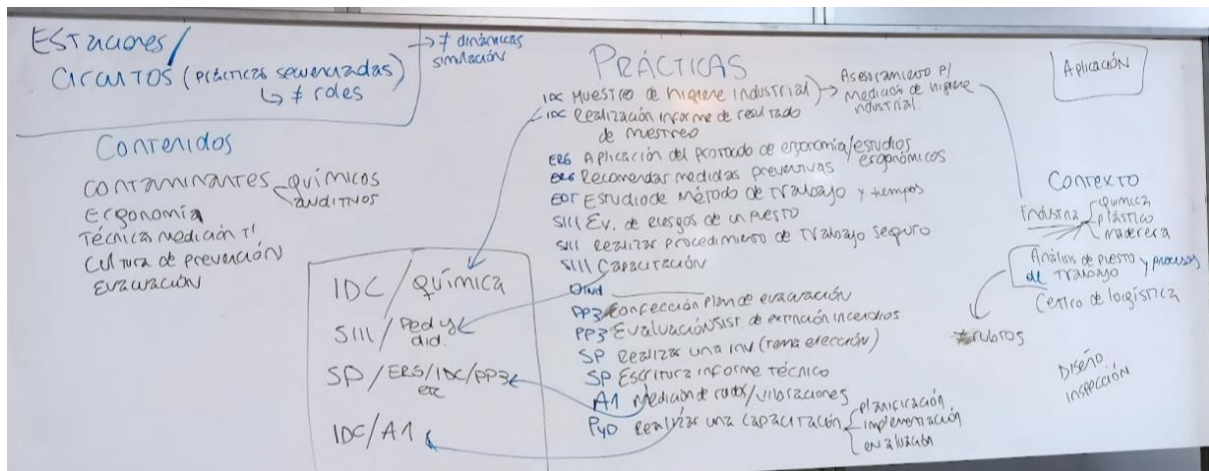 Estaciones/
Circuitos (prácticas secuenciadas)
↳ ≠ roles
→ ≠ dinámicas
simulación
Contenidos
Contaminantes químicos
auditivos
Ergonomía
Técnicas medición T'
Cultura de prevención
Evacuación
IDC/Química
SIII/Ped y
did.
SP/ERG/IDC/PP3
etc
IDC/A1
PRÁCTICAS
IDC Muestreo de higiene industrial) → Asesoramiento p/
medición de higiene
industrial.
IDC Realización informe de resultado
de muestreo
ERG Aplicación del protocolo de ergonomía/estudios
ergonómicos
ERG Recomendar medidas preventivas
EOT Estudio de Método de trabajo y tiempos
SIII Ev. de riesgos de un puesto
SIII Realizar procedimiento de trabajo seguro
SIII Capacitación
PP3 Confección plan de evacuación
PP3 Evaluación sist. de extinción incendios
SP Realizar una inv (tema elección)
SP Escritura informe técnico
A1 Medición de ruidos/vibraciones
PyD Realizar una capacitación planificación
implementación
evaluación
Aplicación
Contexto
Industria química
plástico
maderera
Análisis de puesto y procesos
de trabajo
Centro de logística
≠ rubros
Diseño
inspección